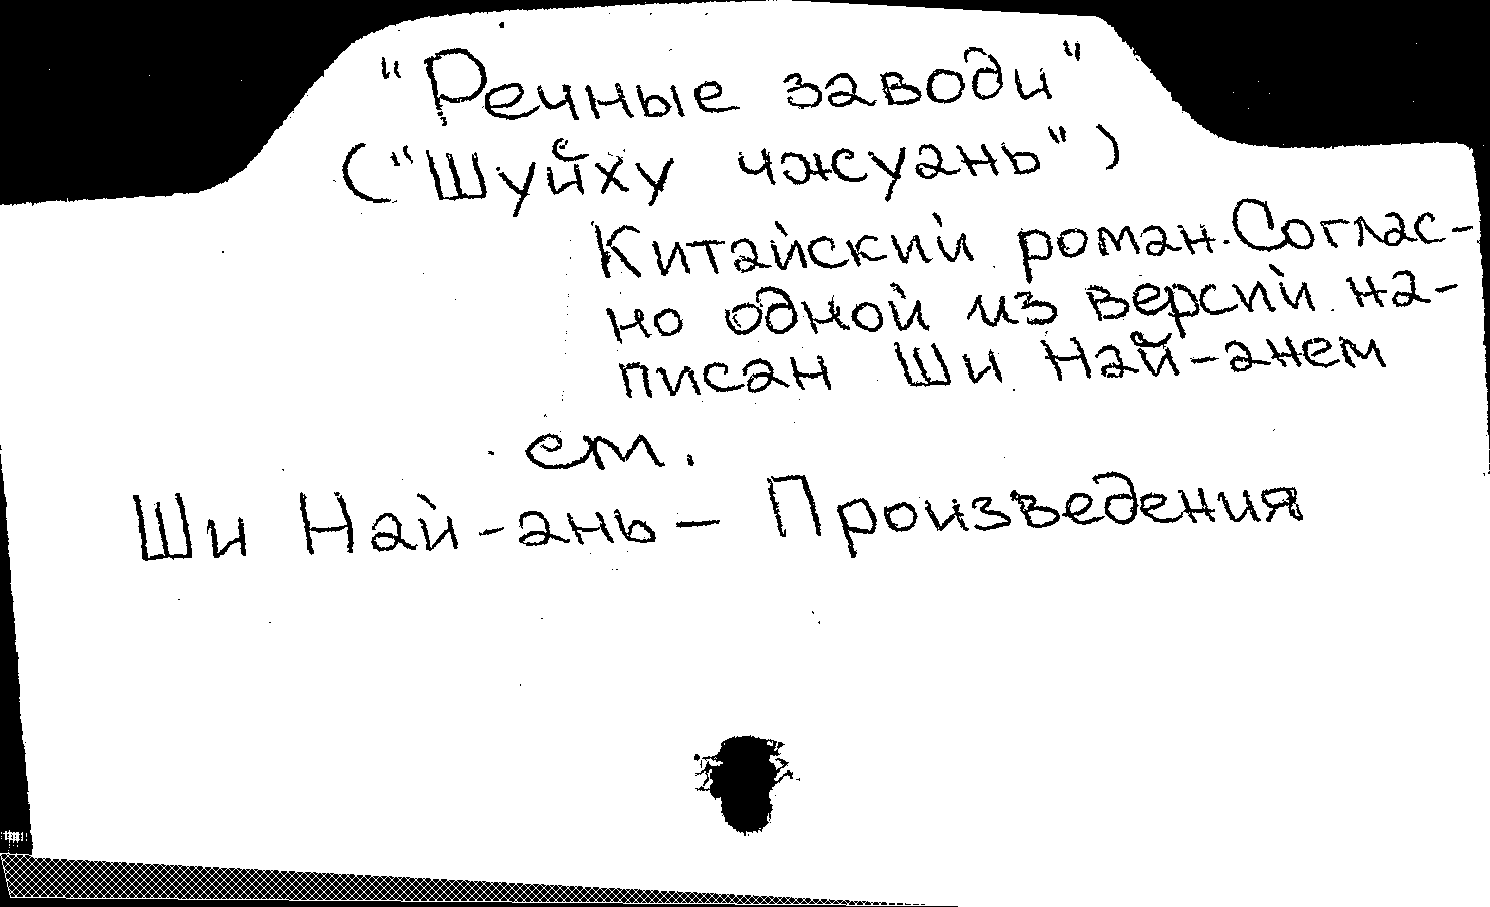 "Речные заводи"
("Шуйху чжуань")
Китайский роман. Соглас-
но одной из версий на-
писан Ши Най-анем
см.
Ши Най-ань - Произведения